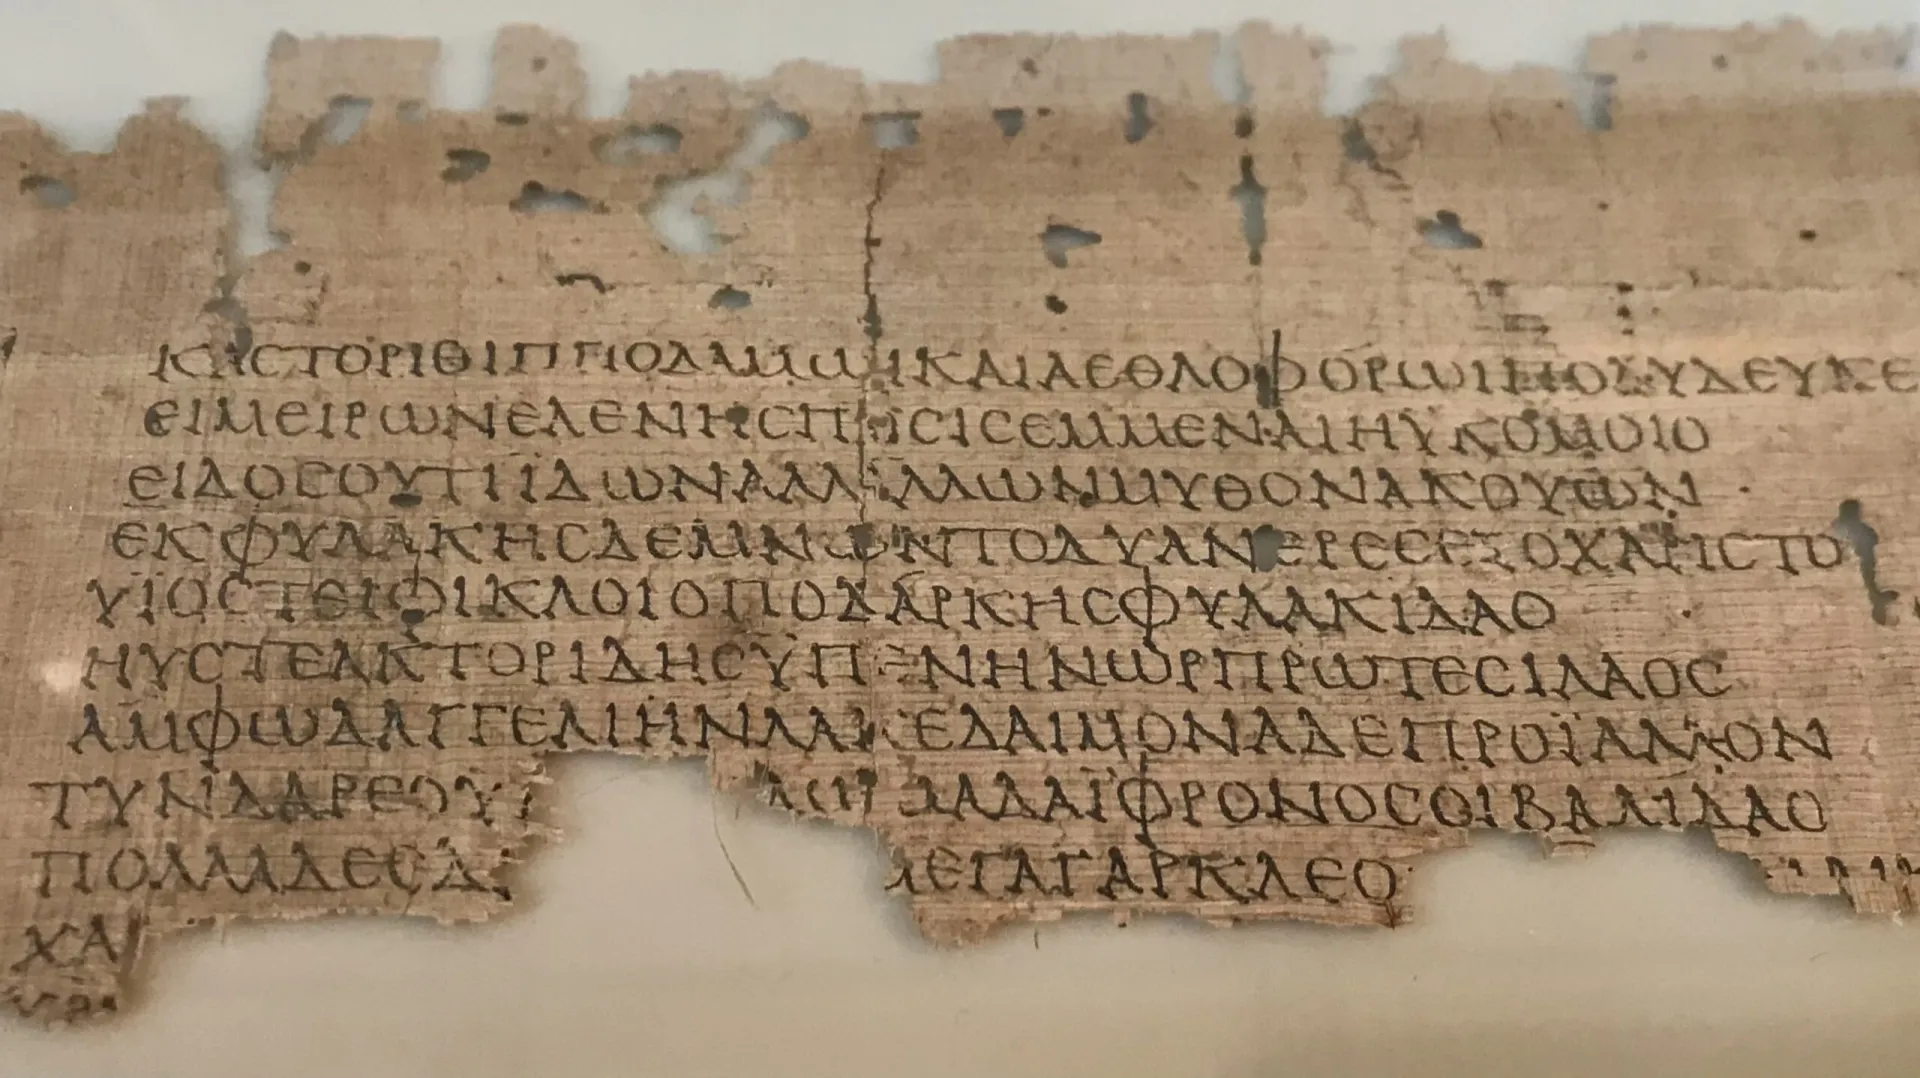 ΚΑCΤΟΡΙΘΙΠΠΟΔΑΜΩΙΚΑΙΑΕΘΛΟΦΟΡΩΙΠΟΛΥΔΕΥΚΕ
ΕΙΜΕΙΡΩΝΕΛΕΝΗCΠΟCΙCΕΜΜΕΝΑΙΗΥΚΟΜΟΙΟ
ΕΙΔΟCΟΥΤΙΪΔΩΝΑΛΛΑΛΛΩΝΜΥΘΟΝΑΚΟΥΩΝ
ΕΚΦΥΛΑΚΗCΔΕΜΝΩΝΤΟΔΥΑΝΕΡΕCΕΞΟΧΑΡΙCΤΟ
ΥΪΟCΤΕΙΦΙΚΛΟΙΟΠΟΔΑΡΚΗCΦΥΛΑΚΙΔΑΟ
ΗΥCΤΕΑΚΤΟΡΙΔΗCΥΠΕΝΗΝΩΡΠΡΩΤΕCΙΛΑΟC
ΑΜΦΩΔΑΓΓΕΛΙΗΝΛΑΚΕΔΑΙΜΟΝΑΔΕΠΡΟΪΑΛΛΟΝ
ΤΥΝΔΑΡΕΟΥ ΔΩΜΑΔΑΪΦΡΟΝΟCΟΙΒΑΛΙΔΑΟ
ΠΟΛΛΑΔΕΕΔ ΜΕΓΑΓΑΡΚΛΕΟ
ΧΑ